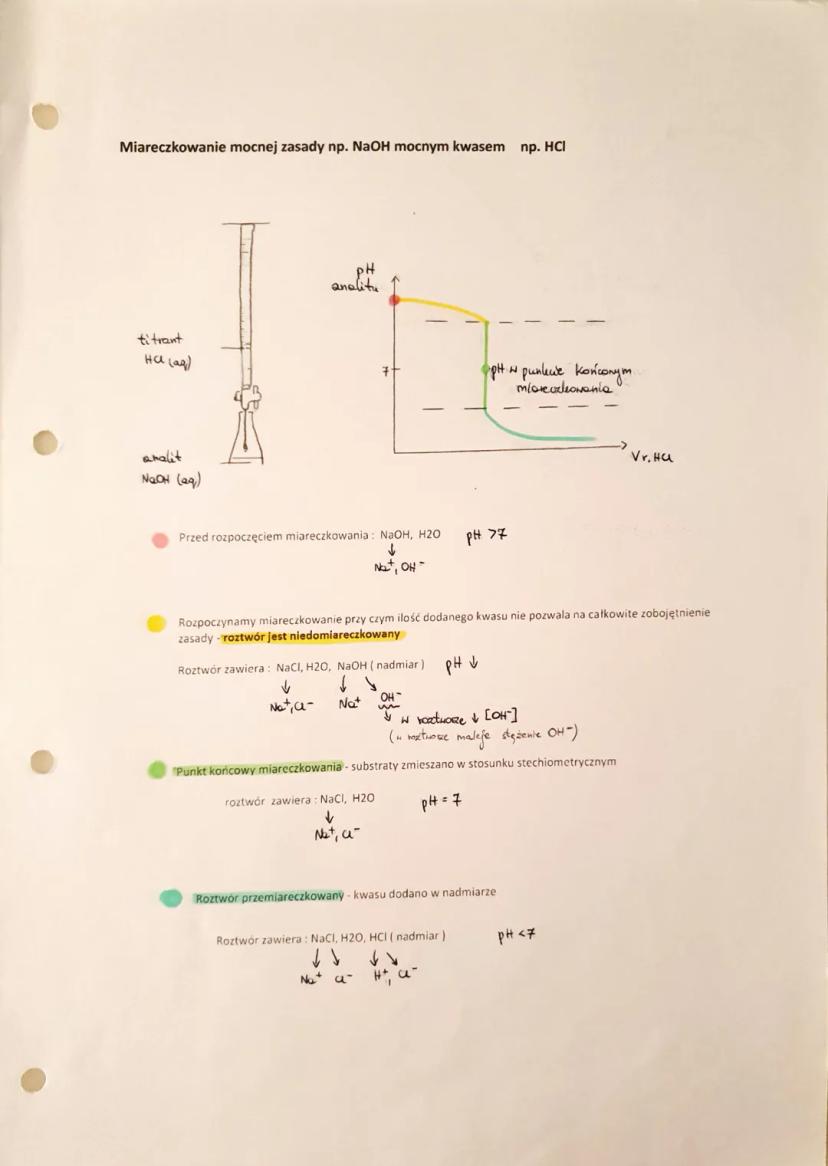 Miareczkowanie mocnej zasady np. NaOH mocnym kwasem np. HCl
pH
analitu
titrant
HCl (aq)
7
pH w punkcie końcowym
miareczkowania
analit
NaOH (aq)
Vr. HCl
Przed rozpoczęciem miareczkowania : NaOH, H2O pH >7
↓
Na⁺, OH⁻
Rozpoczynamy miareczkowanie przy czym ilość dodanego kwasu nie pozwala na całkowite zobojętnienie
zasady - roztwór jest niedomiareczkowany
Roztwór zawiera : NaCl, H2O, NaOH ( nadmiar ) pH ↓
↓ ↓ ↘
Na⁺, Cl⁻ Na⁺ OH⁻
↓ w roztworze ↓ [OH⁻]
(w roztworze maleje stężenie OH⁻)
Punkt końcowy miareczkowania - substraty zmieszano w stosunku stechiometrycznym
roztwór zawiera : NaCl, H2O pH = 7
↓
Na⁺, Cl⁻
Roztwór przemiareczkowany - kwasu dodano w nadmiarze
Roztwór zawiera : NaCl, H2O, HCl ( nadmiar ) pH <7
↓ ↘ ↓ ↘
Na⁺ Cl⁻ H⁺, Cl⁻